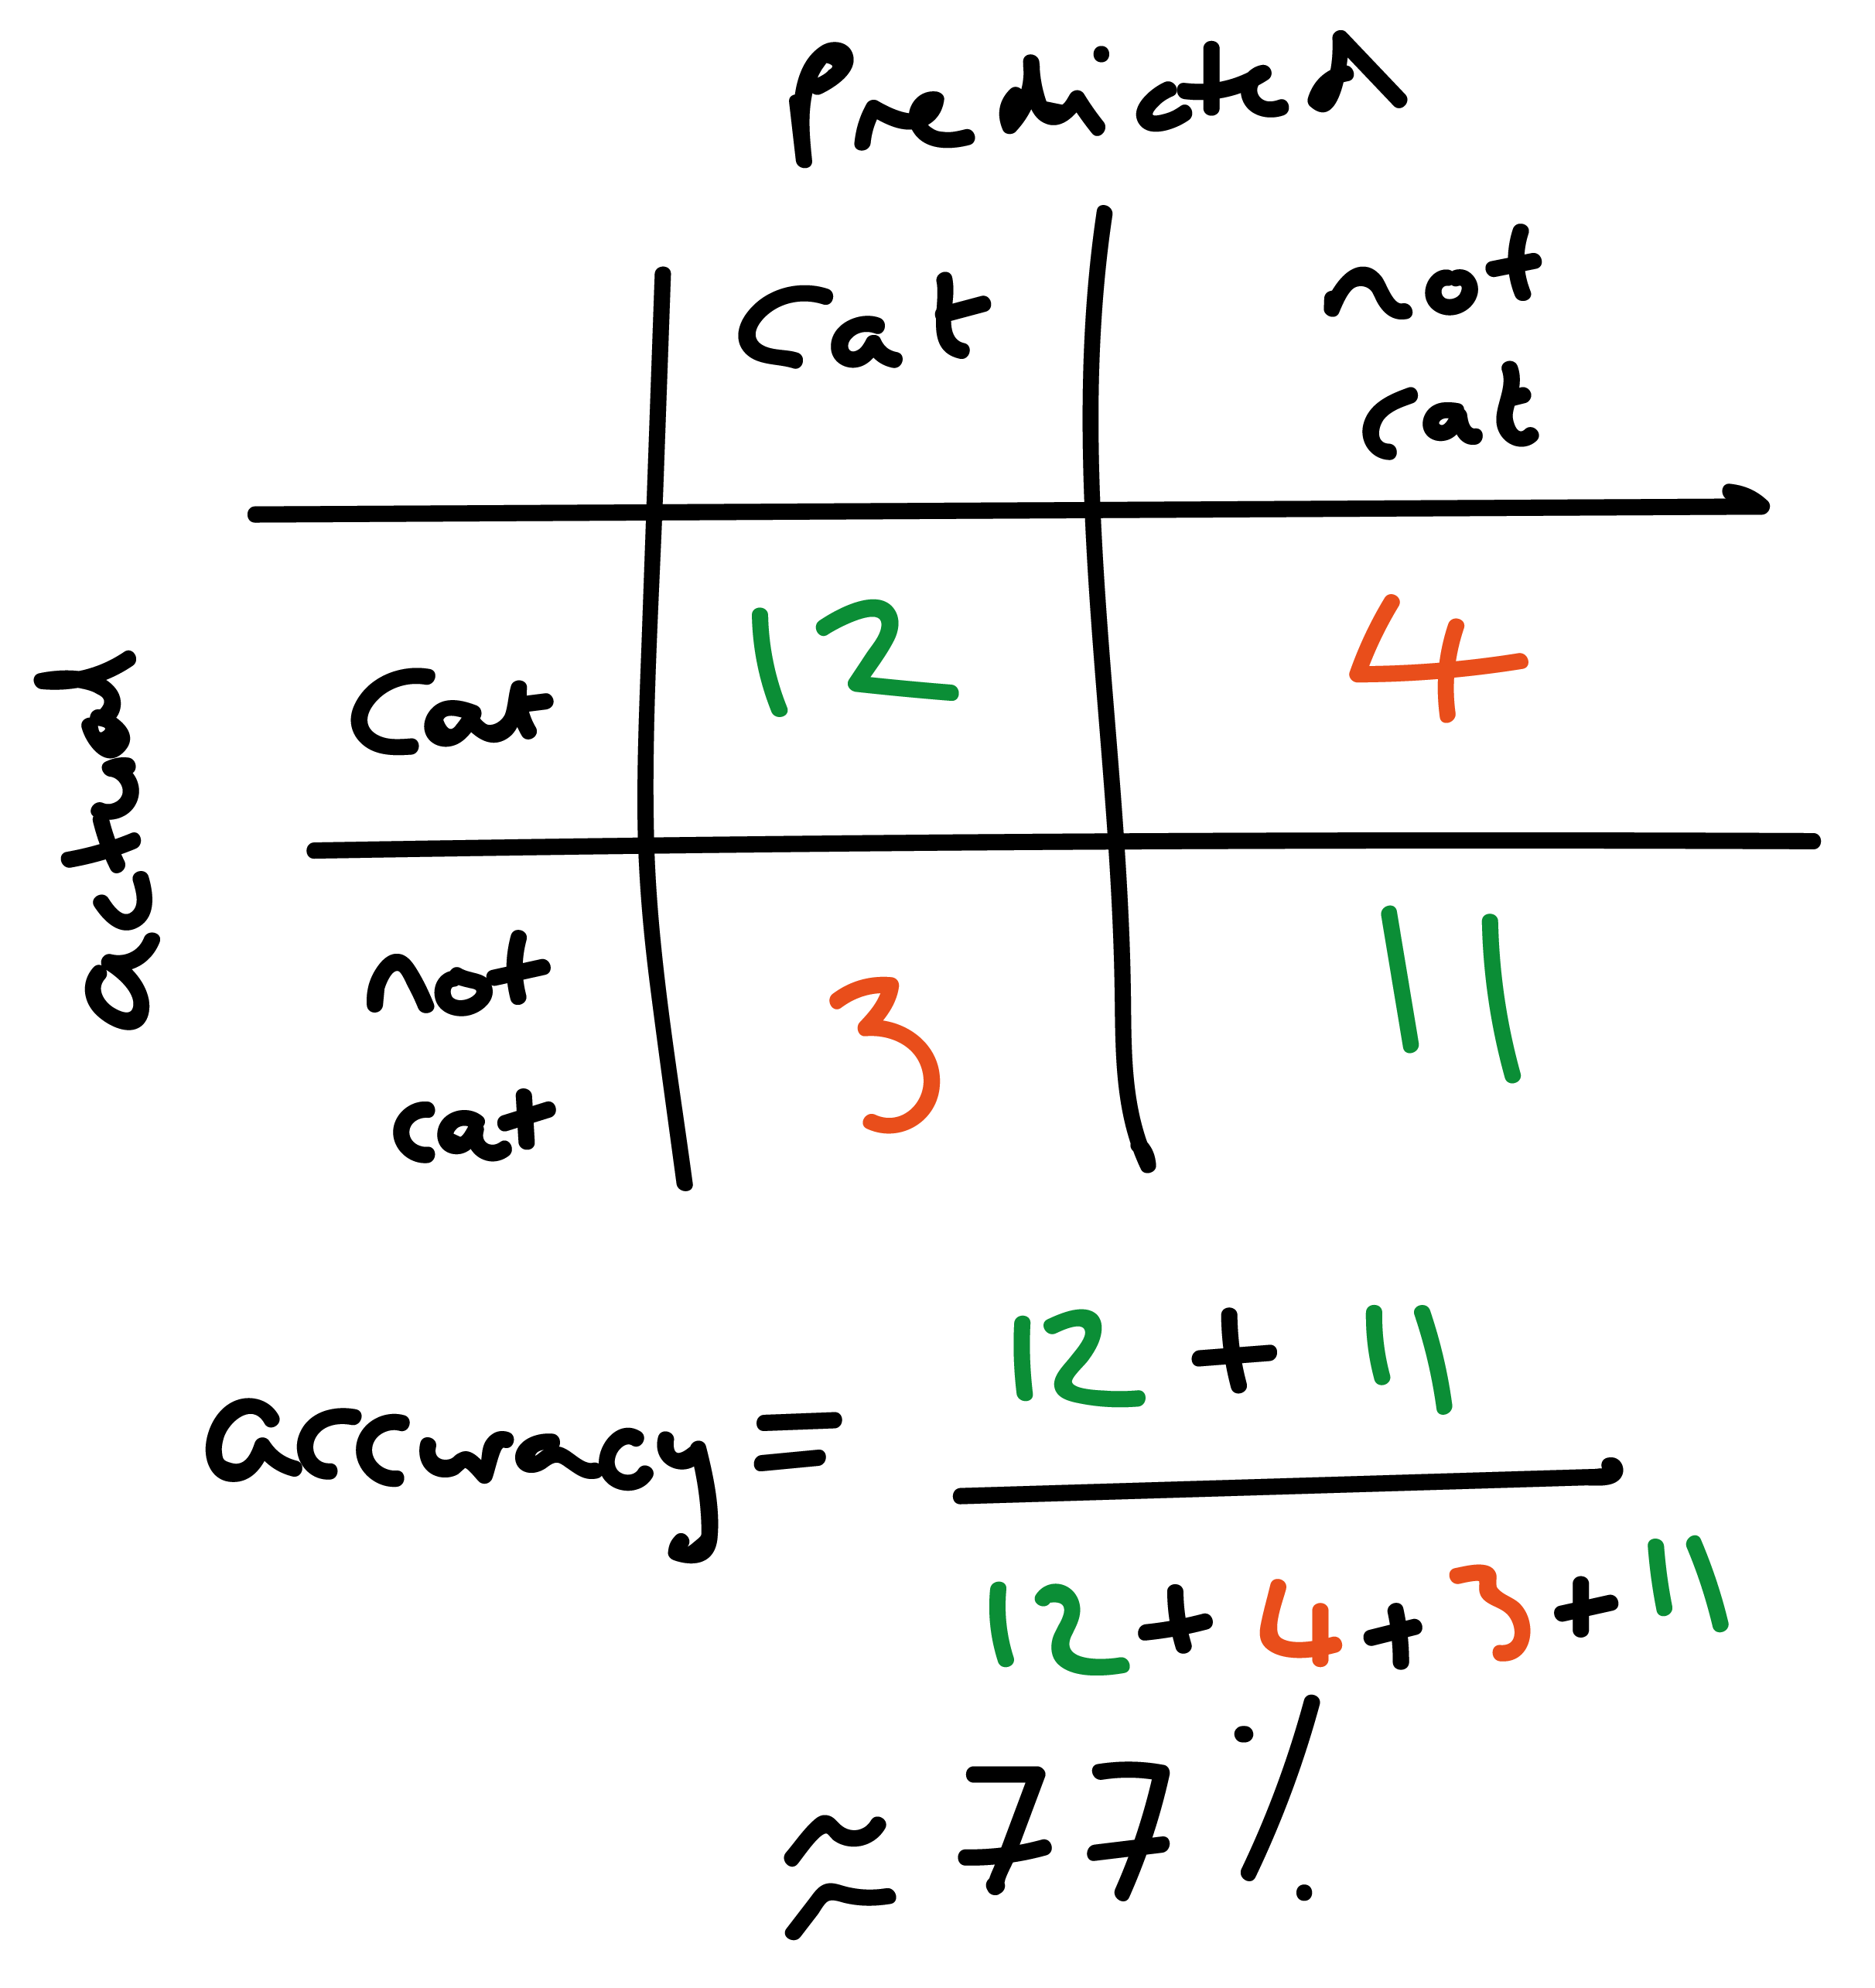 Predicted
cat
not
cat
actual
cat
12
4
not
cat
3
11
accuracy = 12 + 11
12 + 4 + 3 + 11
≈ 77%